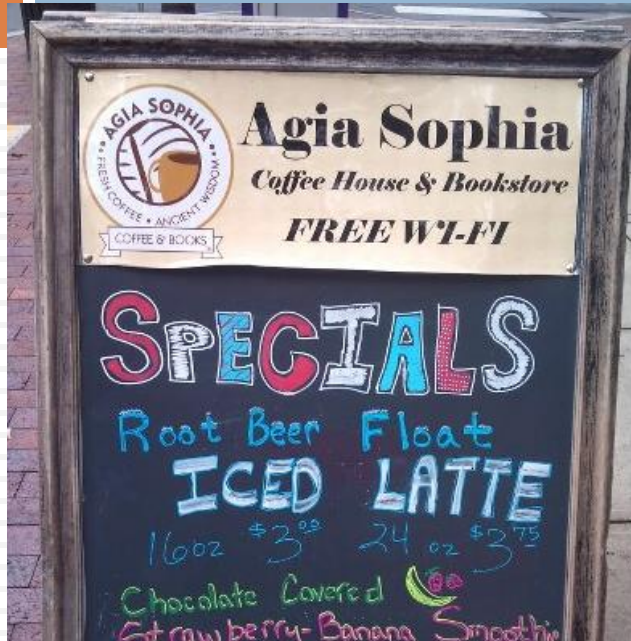 AGIA SOPHIA
FRESH COFFEE • ANCIENT WISDOM
COFFEE & BOOKS
Agia Sophia
Coffee House & Bookstore
FREE WI-FI
SPECIALS
Root Beer Float
ICED LATTE
16oz $3.00 24 oz $3.75
Chocolate Covered
Strawberry-Banana Smoothie